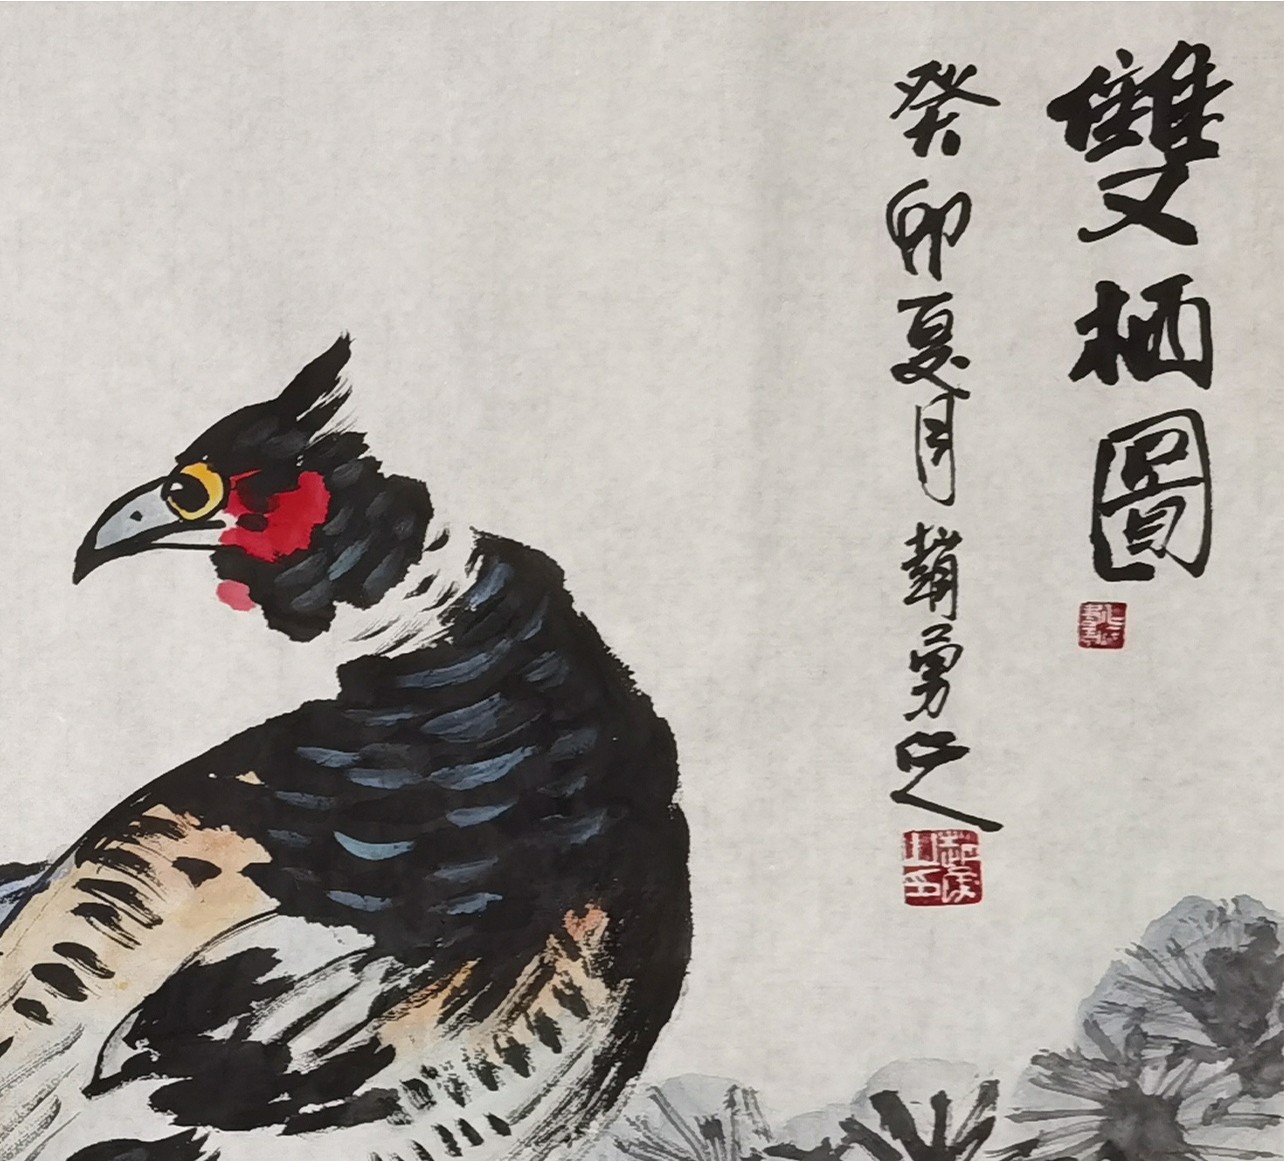 雙栖圖
癸卯夏月趙勇之